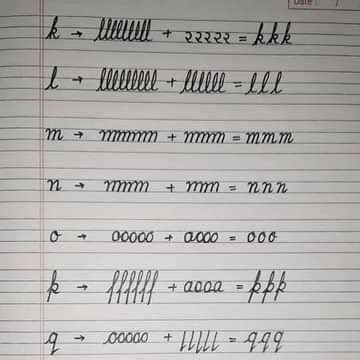 Date : /
k → llllllll + 22222 = k k k
l → lllllllll + llllll = l l l
m → mmmm + mmm = m m m
n → mmm + mm = n n n
o → ooooo + aooo = o o o
p → ffffff + aooa = p p p
q → ooooo + lllll = q q q